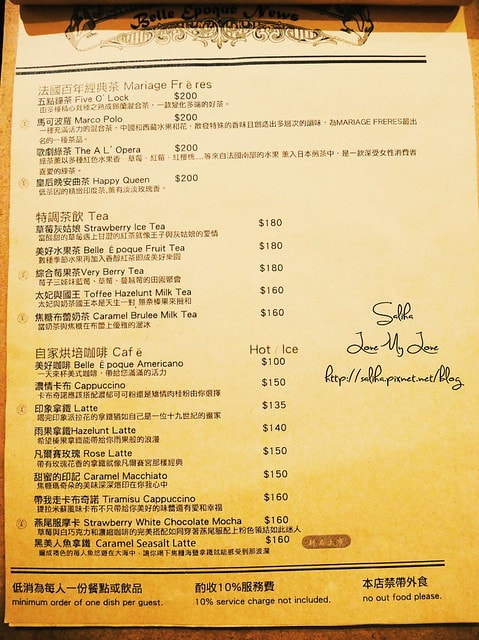 Belle Epoque News
法國百年經典茶 Mariage Frères
五點鐘茶 Five O' Lock $200
由多種精心栽種之熟成錫蘭混合茶，一款變化多端的好茶。
馬可波羅 Marco Polo $200
一種充滿活力的混合茶，中國和西藏水果和花，散發特殊的香味且創造出多層次的韻味，為MARIAGE FRERES最出
名的一種茶品。
歌劇綠茶 The A L' Opera $200
綠茶薰以多種紅色水果香、草莓、紅莓、紅櫻桃....等來自法國南部的水果 薰入日本煎茶中，是一款深受女性消費者
喜愛的綠茶。
皇后晚安曲茶 Happy Queen $200
低茶因的精緻印度茶,薰有淡淡玫瑰香。
特調茶飲 Tea
草莓灰姑娘 Strawberry Ice Tea $180
當酸甜的草莓遇上甘澀的紅茶就像王子與灰姑娘的愛情
美好水果茶 Belle Époque Fruit Tea $180
數種季節水果再加入香醇紅茶即成美好樂園
綜合莓果茶Very Berry Tea $180
莓子三姊妹藍莓、草莓、蔓越莓的田園聚會
太妃與國王 Toffee Hazelunt Milk Tea $160
太妃與奶茶國王本是天生一對 無奈榛果來攪和
焦糖布蕾奶茶 Caramel Brulee Milk Tea $160
當奶茶與焦糖在布蕾上優雅的溜冰
Salika
Love My Love
http://salika.pixnet.net/blog
自家烘培咖啡 Café Hot / Ice
美好咖啡 Belle Époque Americano $100
一天來杯美式咖啡，帶給您滿滿的活力
濃情卡布 Cappuccino $150
卡布奇諾應該搭配濃郁可可粉還是嬌情肉桂粉由你選擇
印象拿鐵 Latte $135
喝完印象派拉花的拿鐵猶如自己是一位十九世紀的畫家
雨果拿鐵Hazelunt Latte $140
希望榛果拿鐵能帶給你雨果般的浪漫
凡爾賽玫瑰 Rose Latte $150
帶有玫瑰花香的拿鐵就像凡爾賽宮那樣經典
甜蜜的印記 Caramel Macchiato $150
焦糖瑪奇朵的美味深深烙印在你我心中
帶我走卡布奇諾 Tiramisu Cappuccino $160
提拉米蘇風味卡布不只帶給你美好的味蕾還有愛和幸福
燕尾服摩卡 Strawberry White Chocolate Mocha $160
草莓與白巧克力和濃縮咖啡的完美搭配如同穿著燕尾服配上粉色領結如此迷人
黑美人魚拿鐵 Caramel Seasalt Latte $160 新品上市
曬成褐色的每人魚悠遊在大海中，讓你喝下焦糖海鹽拿鐵就能感受到那波瀾
低消為每人一份餐點或飲品 酌收10%服務費 本店禁帶外食
minimum order of one dish per guest. 10% service charge not included. no out food please.